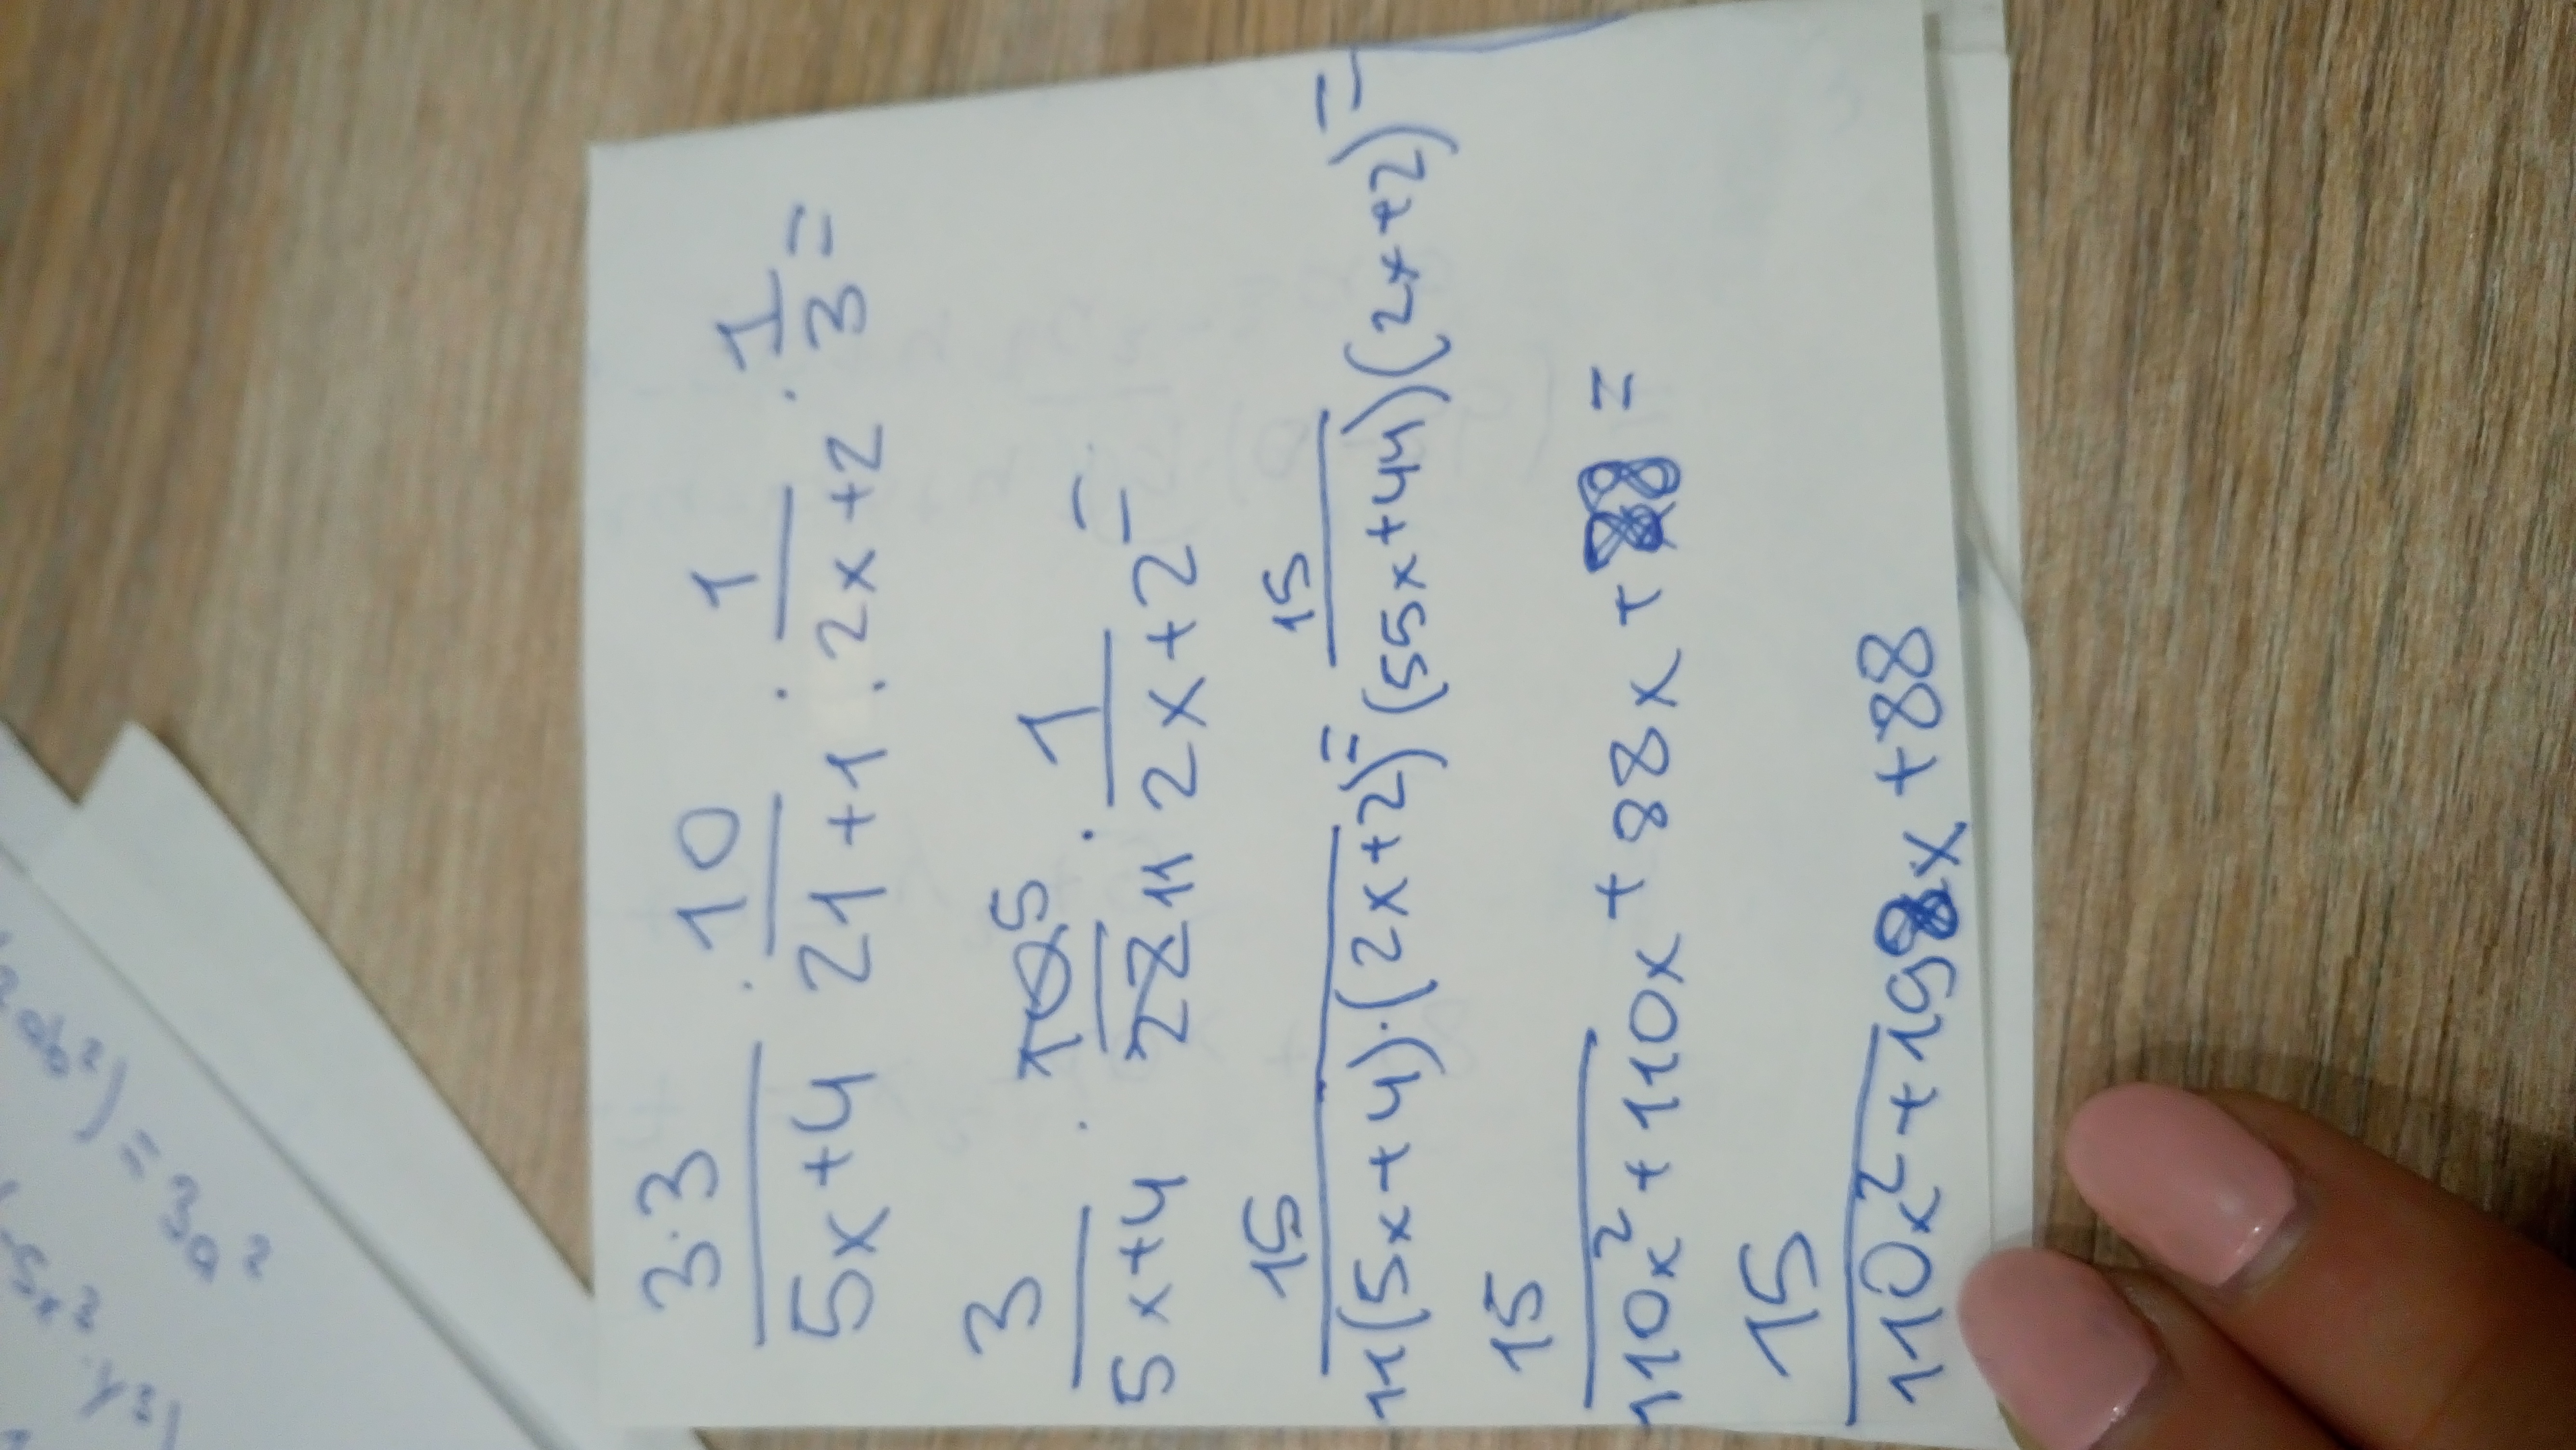 3·3/5x+4 · 10/21+1 · 1/2x+2 · 1/3 =
3/5x+4 · 10 5/22 11 · 1/2x+2 =
15/11(5x+4)·(2x+2) = 15/(55x+44)(2x+2) =
15/110x²+110x+88x+88 =
15/110x²+198x+88
ab²) = 3a²
-5x²·y³)